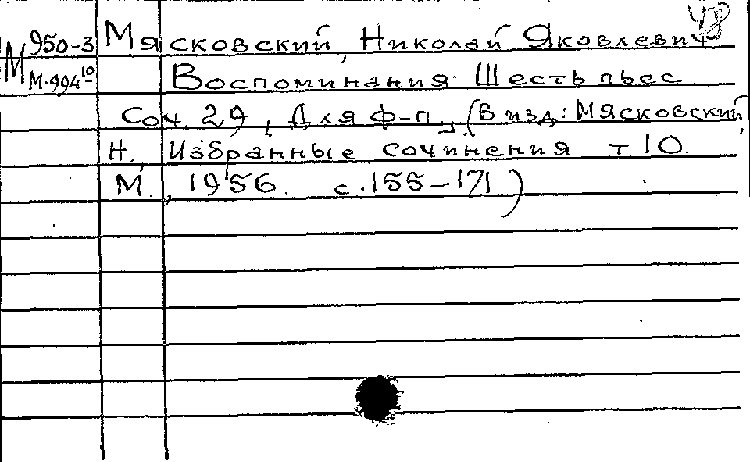 М 950-3 Мясковский, Николай Яковлевич
М-994¹⁰ Воспоминания. Шесть пьес
Соч. 29, Для ф-п., (В изд: Мясковский,
Н., Избранные сочинения т 10.
М., 1956. с. 155-171)